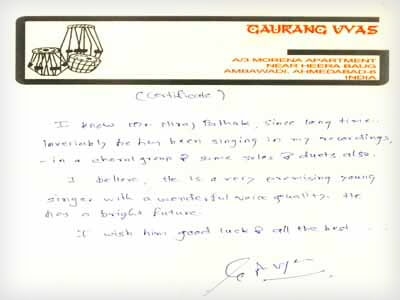 GAURANG VYAS
A/3 MORENA APARTMENT
NEAR HEERA BAUG
AMBAWADI, AHMEDABAD-6
INDIA
(Certificate)
I know Mr. Niraj Pathak, since long time..
Invariably he has been singing in my recordings,
- in a choral group & some solos & duets also.
I believe, He is a very promising young
singer with a wonderful voice quality. He
has a bright future.
I wish him good luck & all the best